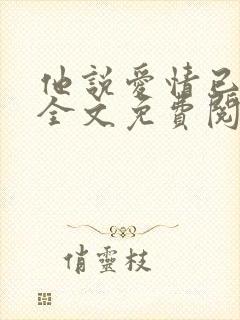 他說愛情已
全文免費閱
俏靈枝